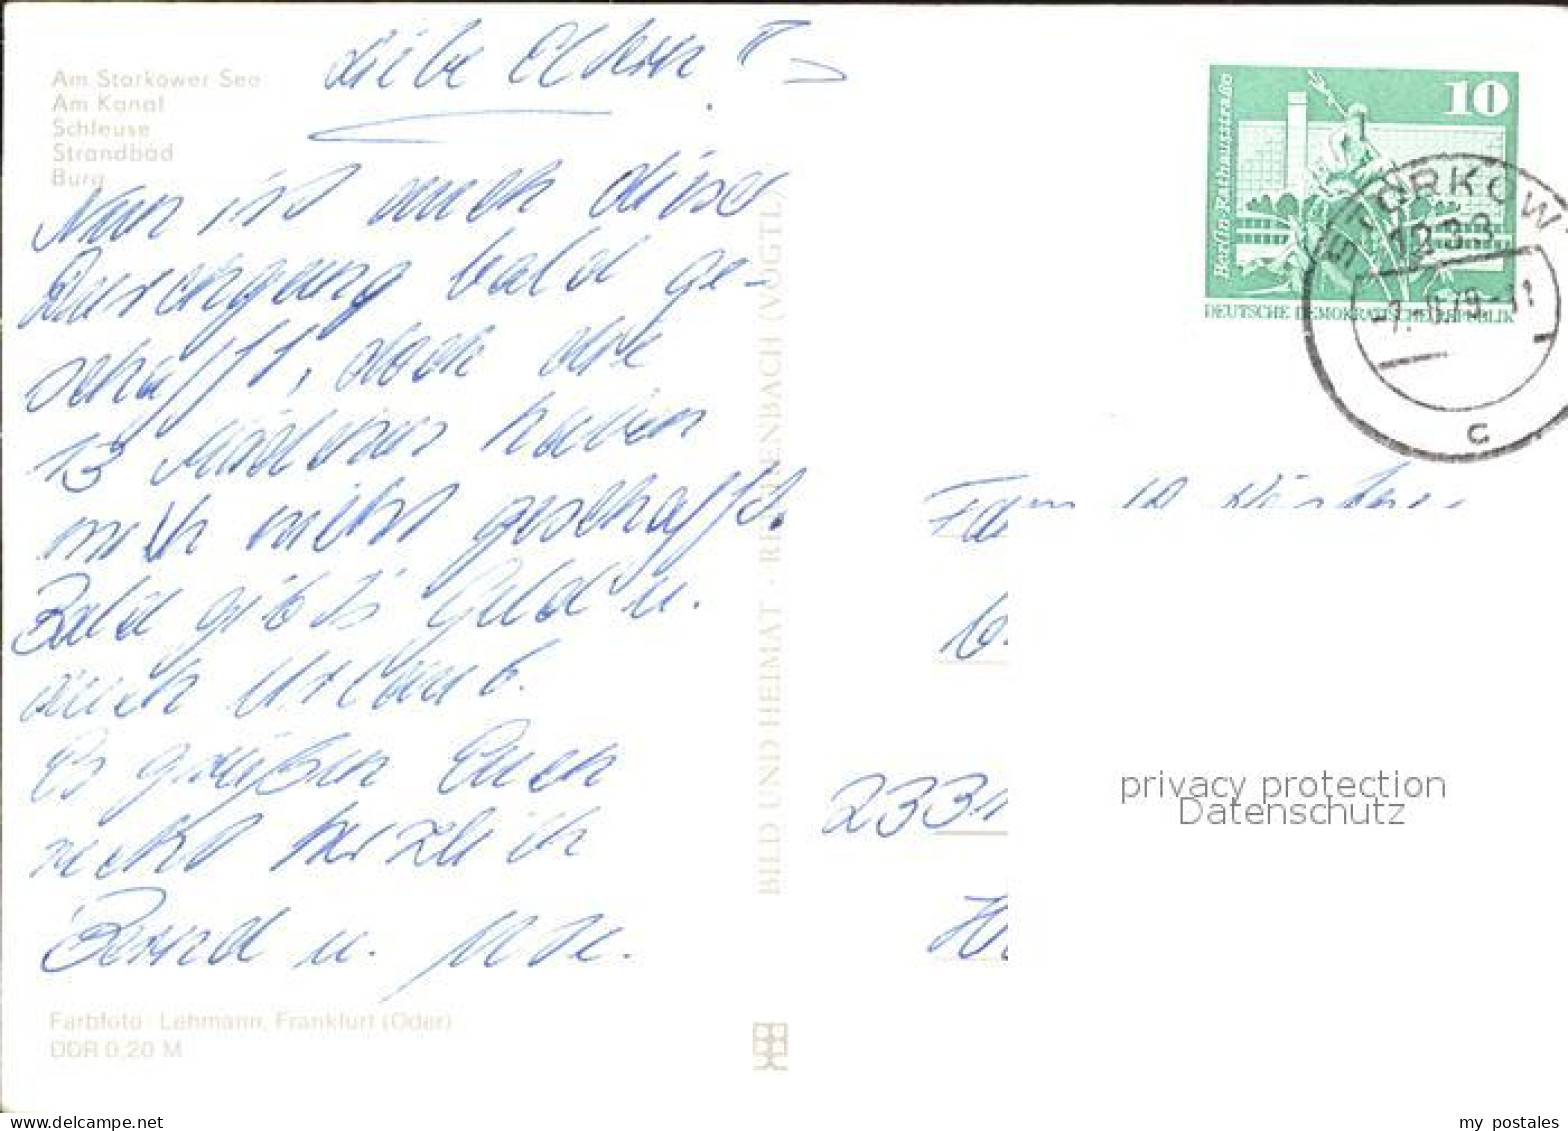 Am Storkower See
Am Kanal
Schleuse
Strandbad
Burg
Liebe Eltern!
Nun ist auch dieser
Durchgang bald ge-
schafft, doch die
13 Mädchen haben
mich nicht geschafft.
Bald gibt's Geld u.
auch Urlaub.
Es grüßen Euch
recht herzlich
Bernd u.
Farbfoto: Lehmann, Frankfurt (Oder)
DDR 0,20 M
BILD UND HEIMAT · REICHENBACH (VOGTL)
Berlin-Rathausstraße
10
DEUTSCHE DEMOKRATISCHE REPUBLIK
STORKOW
1233
c
Fam.
2331
privacy protection
Datenschutz
my postales